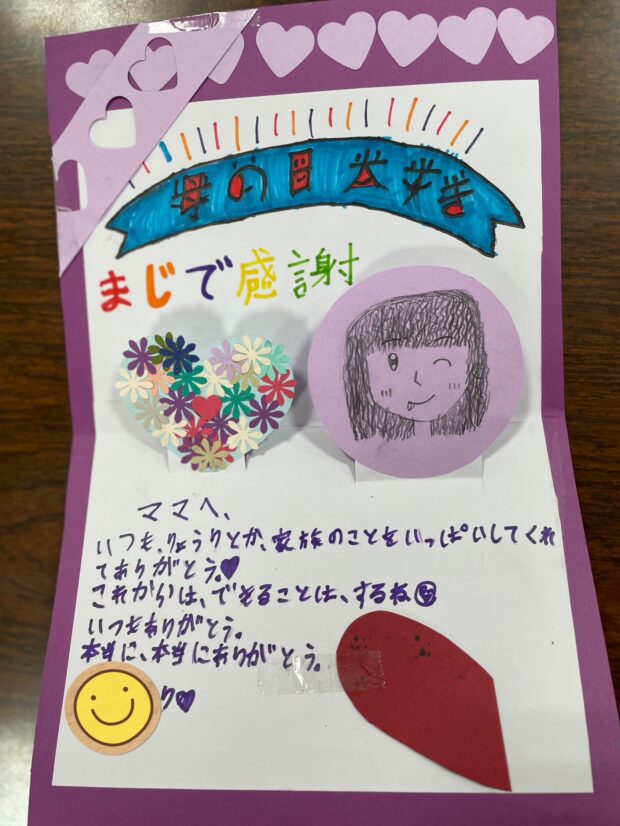 母の日大好き
まじで感謝
ママへ、
いつも、りょうりとか、家族のことをいっぱいしてくれ
てありがとう。♥
これからは、できることは、するね
いつもありがとう。
本当に、本当にありがとう。
り♥